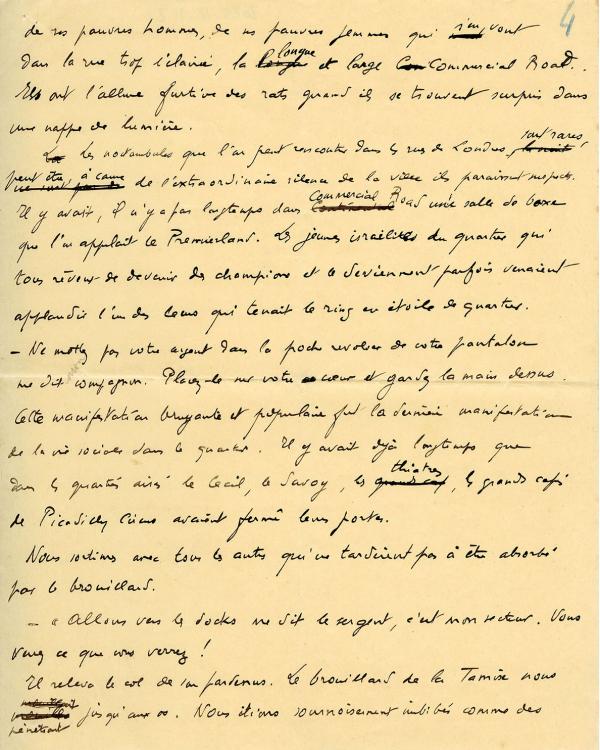 4
de nos pauvres hommes, de nos pauvres femmes qui s'en vont
dans la rue trop éclairée, la longue et large Commercial Road.
Ils ont l'allure furtive des rats quand ils se trouvent surpris dans
une nappe de lumière.
Les noctambules que l'on peut rencontrer dans les rues de Londres, sont rares,
peut être, à cause de l'extraordinaire silence de la ville ils paraissent suspects.
Il y avait, il n'y a pas longtemps dans Commercial Road une salle de boxe
que l'on appelait le Premierland. Les jeunes israélites du quartier qui
tous rêvent de devenir des champions et le deviennent parfois venaient
applaudir l'un des leurs qui tenait le ring en étoile de quartier.
– Ne mettez pas votre argent dans la poche revolver de votre pantalon
me dit compagnon. Placez-le sur votre cœur et gardez la main dessus.
Cette manifestation bruyante et populaire fut la dernière manifestation
de la vie sociale dans le quartier. Il y avait déjà longtemps que
dans les quartiers aisés le Cecil, le Savoy, les théatres, les grands cafés
de Picadilly Circus avaient fermé leurs portes.
Nous sortimes avec tous les autres qui ne tardèrent pas à être absorbés
par le brouillard.
– « Allons vers les docks me dit le sergent, c'est mon secteur. Vous
verrez ce que vous verrez !
Il releva le col de son pardessus. Le brouillard de la Tamise nous
pénétrait jusqu'aux os. Nous étions sournoisement imbibés comme des